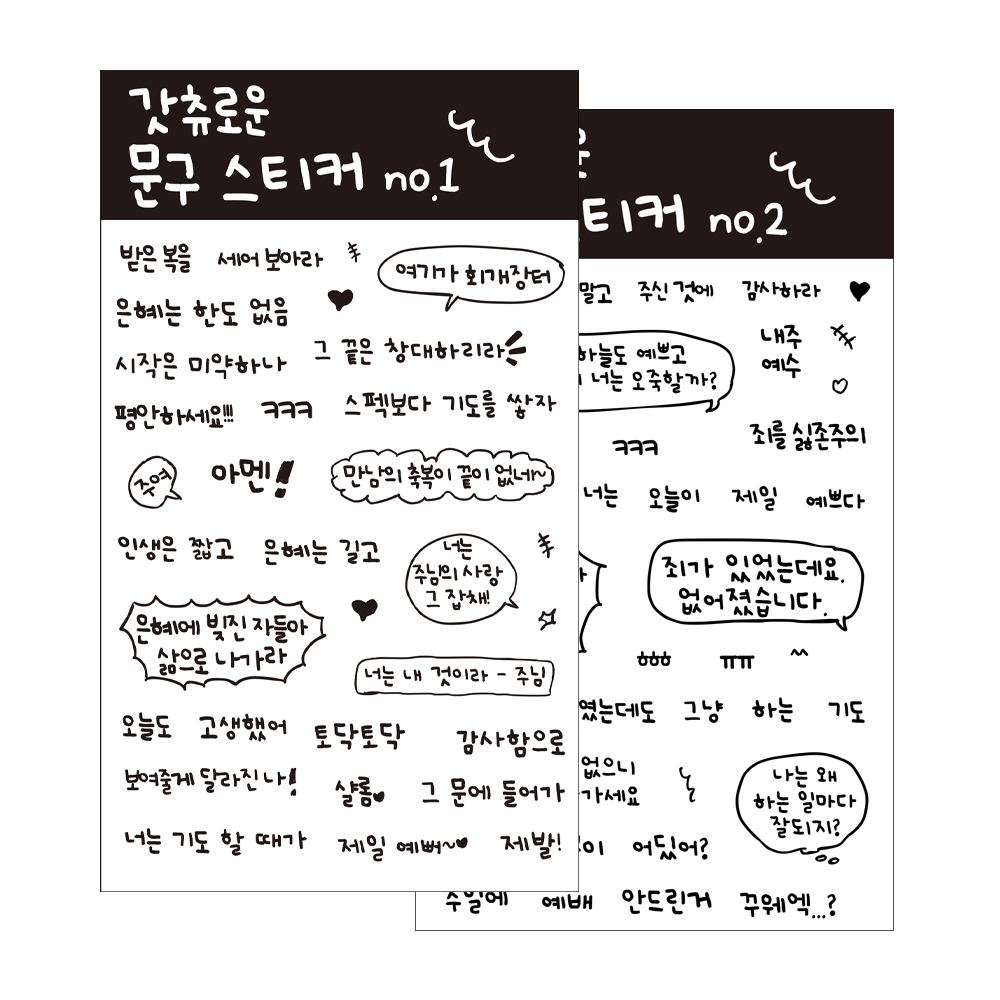 갓츄로운
문구 스티커 no.1
받은 복을 세어 보아라
여기가 회개장터
은혜는 한도 없음
시작은 미약하나 그 끝은 창대하리라
평안하세요!!! ㅋㅋㅋ 스펙보다 기도를 쌓자
주여 아멘! 만남의 축복이 끝이 없네~
인생은 짧고 은혜는 길고
너는
주님의 사랑
그 잡채!
은혜에 빚진 자들아
삶으로 나가라
너는 내 것이라 - 주님
오늘도 고생했어 토닥토닥 감사함으로
보여줄게 달라진 나! 샬롬 그 문에 들어가
너는 기도 할 때가 제일 예뻐~ 제발!
티커 no.2
말고 주신 것에 감사하라
하늘도 예쁘고
너는 오죽할까?
내주
예수
ㅋㅋㅋ 죄를 싫존주의
너는 오늘이 제일 예쁘다
죄가 있었는데요.
없어졌습니다.
ㅎㅎㅎ ㅠㅠ ^^
였는데도 그냥 하는 기도
없으니
가세요
나는 왜
하는 일마다
잘되지?
어딨어?
주일에 예배 안드린거 꾸웨엑...?